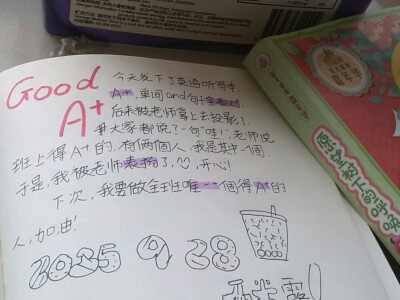 Good
A+
今天发下了英语听写本
A+,单词and句子全都对.
后来被老师拿上去投影了.
并大家都说了一句"哇!",老师说
班上得A+的,有两個人,我是其中一個.
于是,我被老师表扬了,开心!
下次,我要做全班唯一一個得A+的
人,加油!
2025 9 28
愿望树下的呼唤